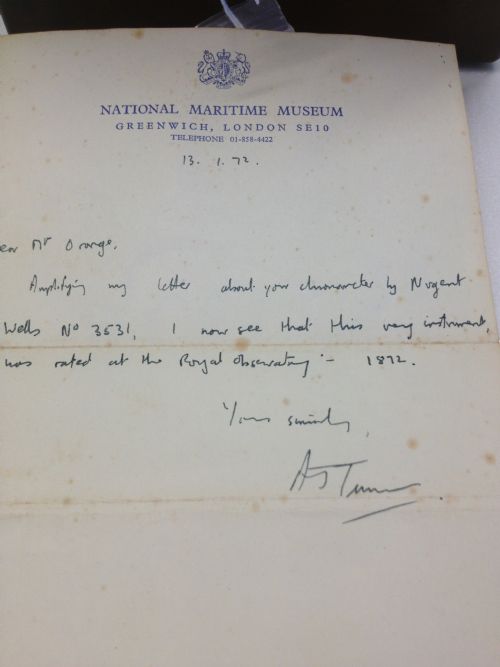 NATIONAL MARITIME MUSEUM
GREENWICH, LONDON SE10
TELEPHONE 01-858-4422
13. 1. 72.
ear Mr Orange,
Amplifying my letter about your chronometer by Nugent
Wells No 3531, I now see that this very instrument,
was rated at the Royal Observatory - 1872.
Yours sincerely,